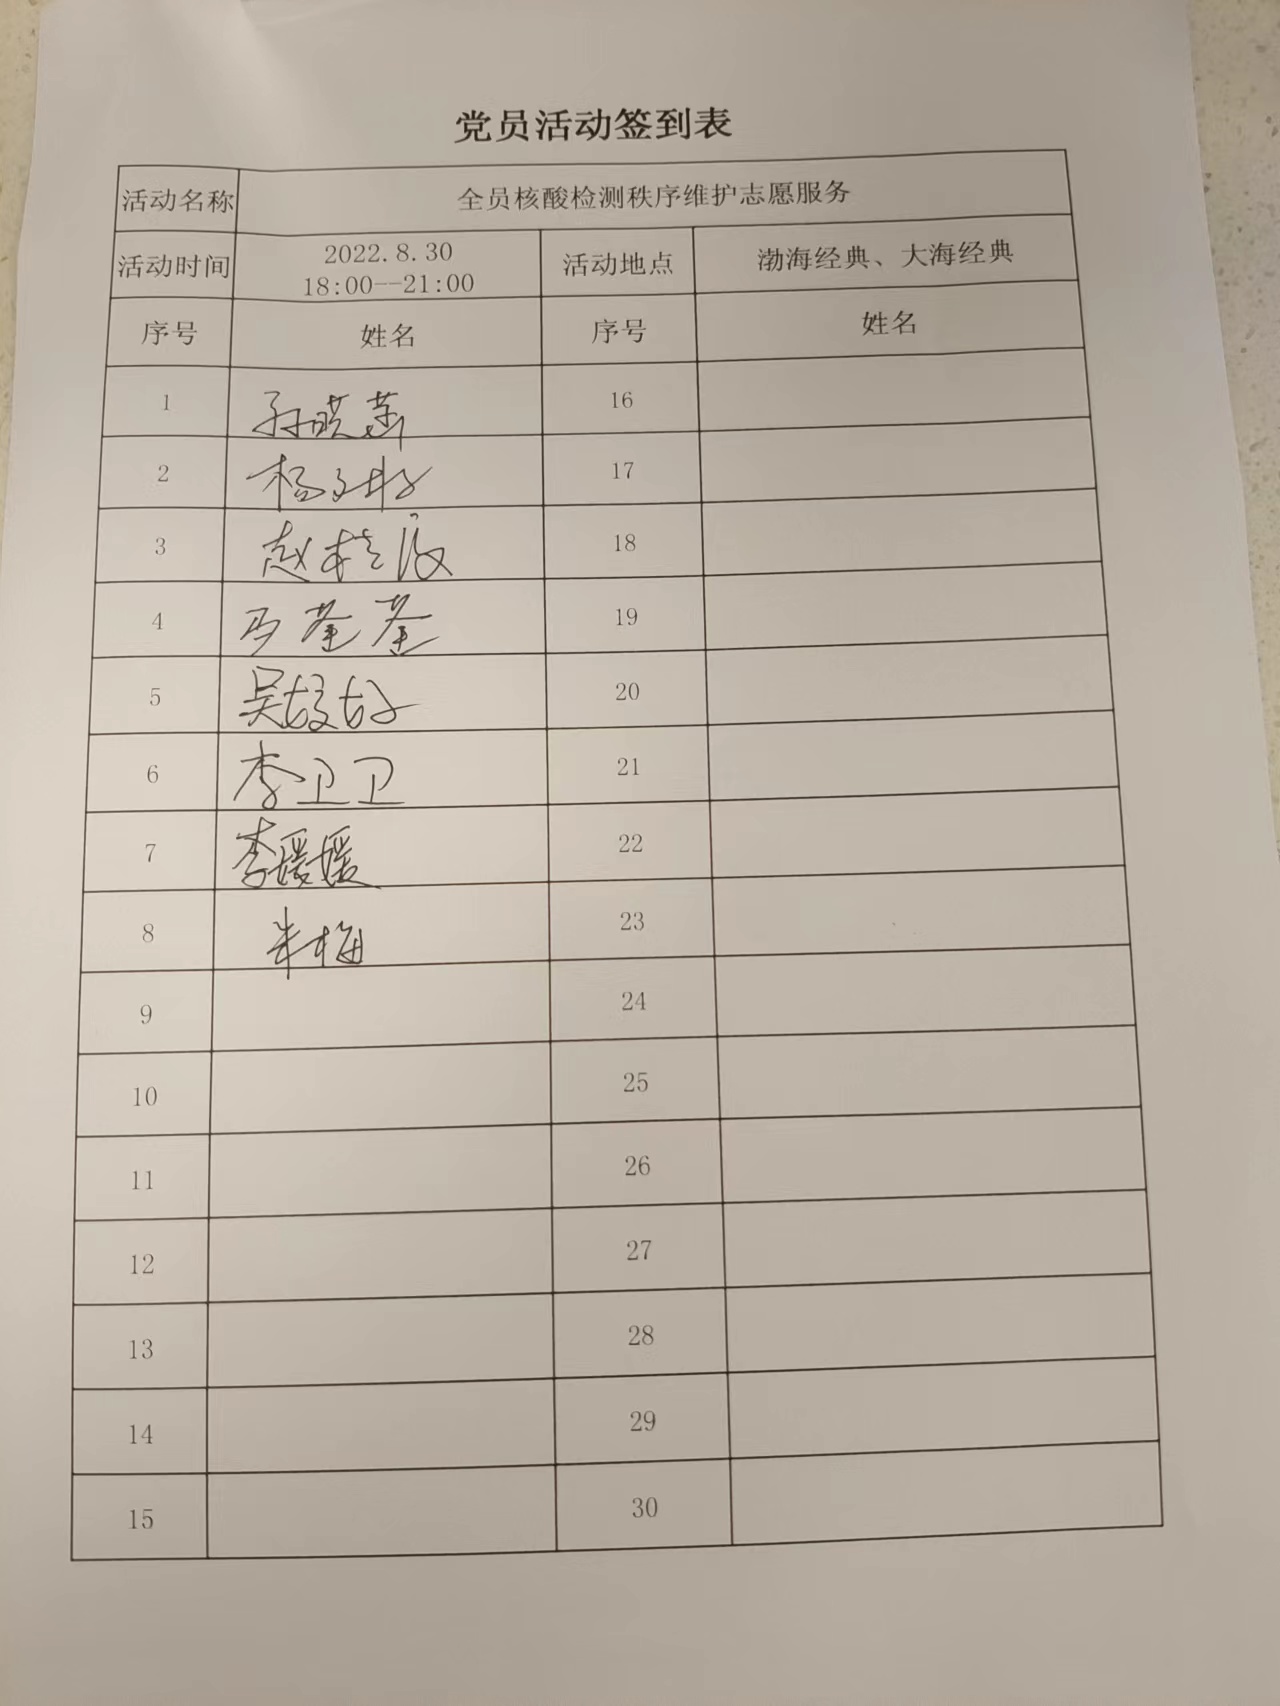 党员活动签到表
活动名称 全员核酸检测秩序维护志愿服务
活动时间 2022.8.30 18:00--21:00 活动地点 渤海经典、大海经典
序号 姓名 序号 姓名
1 孙晓燕 16
2 杨 17
3 赵桂 18
4 马荃荃 19
5 吴 20
6 李卫卫 21
7 李媛媛 22
8 朱梅 23
9 24
10 25
11 26
12 27
13 28
14 29
15 30